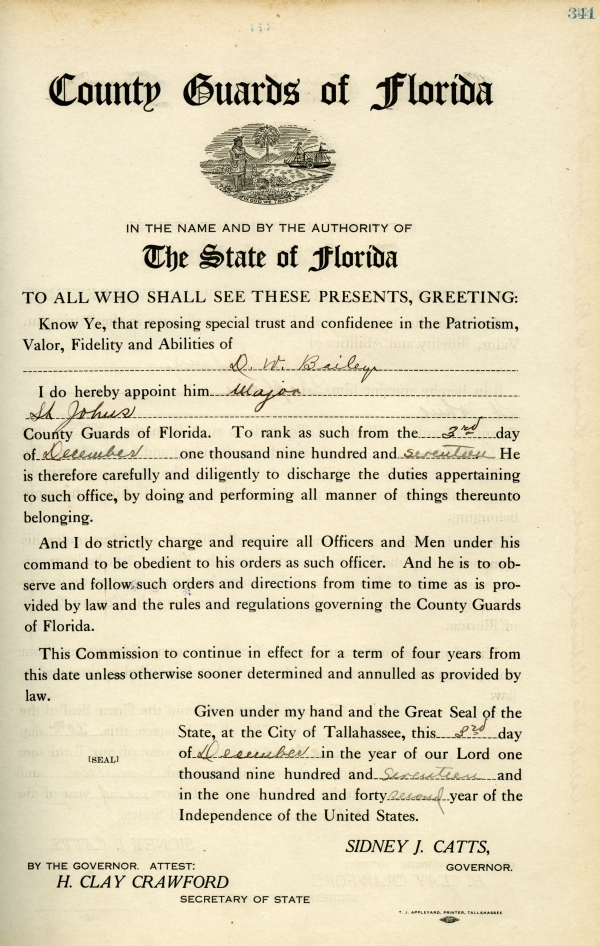 341
County Guards of Florida
IN GOD WE TRUST
IN THE NAME AND BY THE AUTHORITY OF
The State of Florida
TO ALL WHO SHALL SEE THESE PRESENTS, GREETING:
Know Ye, that reposing special trust and confidenee in the Patriotism,
Valor, Fidelity and Abilities of
D. W. Bailey
I do hereby appoint him Major
St Johns
County Guards of Florida. To rank as such from the 3rd day
of December one thousand nine hundred and seventeen He
is therefore carefully and diligently to discharge the duties appertaining
to such office, by doing and performing all manner of things thereunto
belonging.
And I do strictly charge and require all Officers and Men under his
command to be obedient to his orders as such officer. And he is to ob-
serve and follow such orders and directions from time to time as is pro-
vided by law and the rules and regulations governing the County Guards
of Florida.
This Commission to continue in effect for a term of four years from
this date unless otherwise sooner determined and annulled as provided by
law.
Given under my hand and the Great Seal of the
State, at the City of Tallahassee, this 3rd day
of December in the year of our Lord one
[SEAL]
thousand nine hundred and seventeen and
in the one hundred and forty second year of the
Independence of the United States.
SIDNEY J. CATTS,
GOVERNOR.
BY THE GOVERNOR. ATTEST:
H. CLAY CRAWFORD
SECRETARY OF STATE
T. J. APPLEYARD, PRINTER, TALLAHASSEE